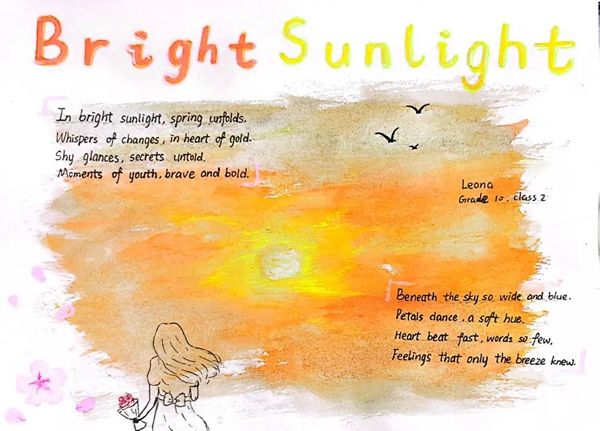 Bright Sunlight
In bright sunlight, spring unfolds.
Whispers of changes, in heart of gold.
Shy glances, secrets untold.
Moments of youth, brave and bold.
Leona
Grade 10, class 2
Beneath the sky so wide and blue.
Petals dance, a soft hue.
Heart beat fast, words so few.
Feelings that only the breeze knew.